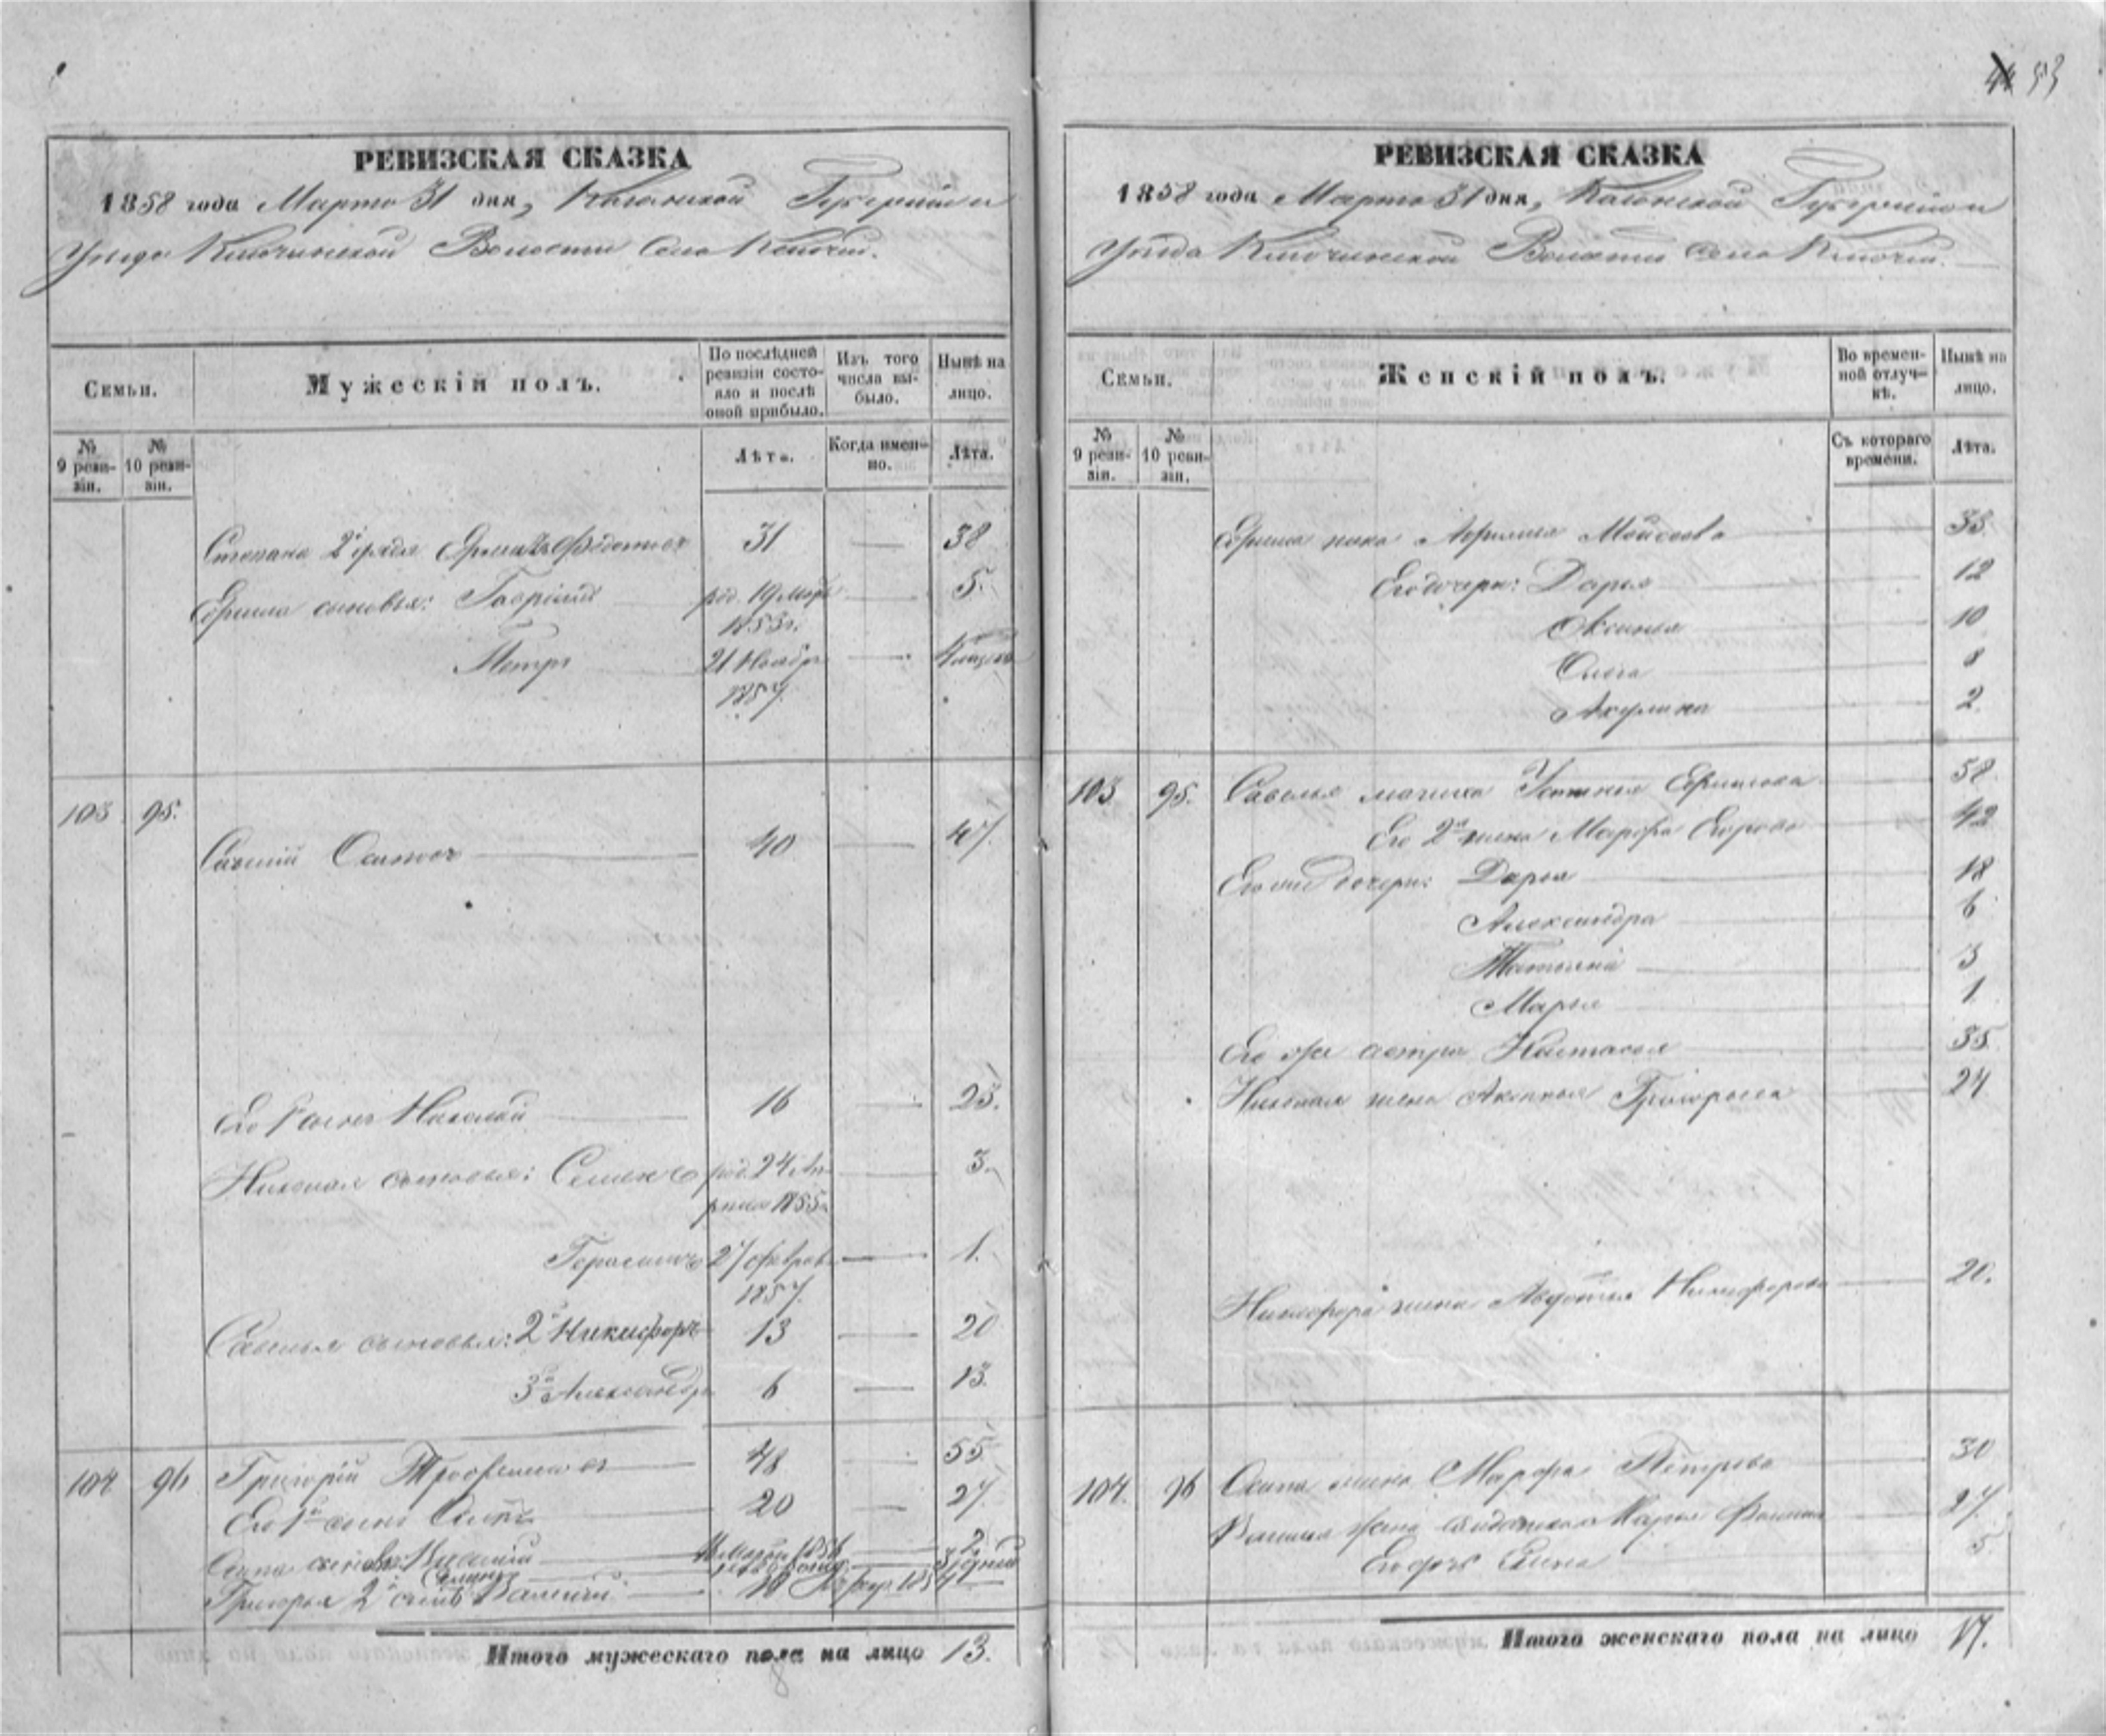 44 53
РЕВИЗСКАЯ СКАЗКА
1858 года Марта 31 дня, Казанской Губернии и
Уезда Ключинской Волости Села Ключей.
Семьи.
Мужескій полъ.
По послѣдней ревизіи состояло и послѣ оной прибыло.
Изъ того числа выбыло.
Нынѣ на лицо.
№ 9 ревизіи.
№ 10 ревизіи.
Лѣта.
Когда именно.
Лѣта.
Степана 2й Федотовъ 31 — 38
Ефима сыновья: Гаврiилъ род. 19 1853г. — 5.
Петръ 21 Ноябр 1857. —
103 95. Савелій Осиповъ 40 — 47.
Его 1 сынъ Николай 16 — 23.
Николая сыновья: Семенъ род. 24 Апреля 1855 — 3.
Герасимъ 27 феврал 1857. — 1.
Савелья сыновья: 2й Никифоръ 13 — 20
3й Александръ 6 — 13.
104 96 Григорій Трофимовъ 48 — 55.
Его 1й сынъ Осипъ 20 — 27.
Осипа сыновья: 1856 — 2.
Григорья 2й сынъ Василій
Итого мужескаго пола на лицо 13.
РЕВИЗСКАЯ СКАЗКА
1858 года Марта 31 дня, Казанской Губернии и
Уезда Ключинской Волости Села Ключей.
Семьи.
Женскій полъ.
Во временной отлучкѣ.
Нынѣ на лицо.
№ 9 ревизіи.
№ 10 ревизіи.
Съ котораго времени.
Лѣта.
Ефима жена Моисеева 38.
Его дочери: Дарья 12
Оксинья 10
Олега 8
Акулина 2.
103 95. Савелья мачиха Устинья Ефимова 58.
Его 2я жена Марфа Егорова 42
Его же дочери: Дарья 18
Александра 6
Татьяна 3
Марья 1.
Его же сестра Настасья 35.
Николая жена Аксинья Григорьева 24
Никифора жена Авдотья Никифорова 20.
104. 96 Осипа жена Марфа Петрова 30
Василья жена солдатка Марья 27.
Его дочь Елена 5.
Итого женскаго пола на лицо 17.